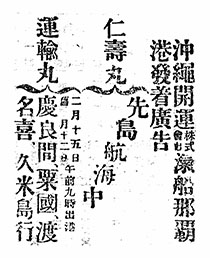 沖繩開運株式會社漁船那覇
港發着廣告
仁壽丸
先島航海中
運輸丸
二月十五日午前九時出港
舊 月十二日
慶良間、粟國、渡
名喜、久米島行